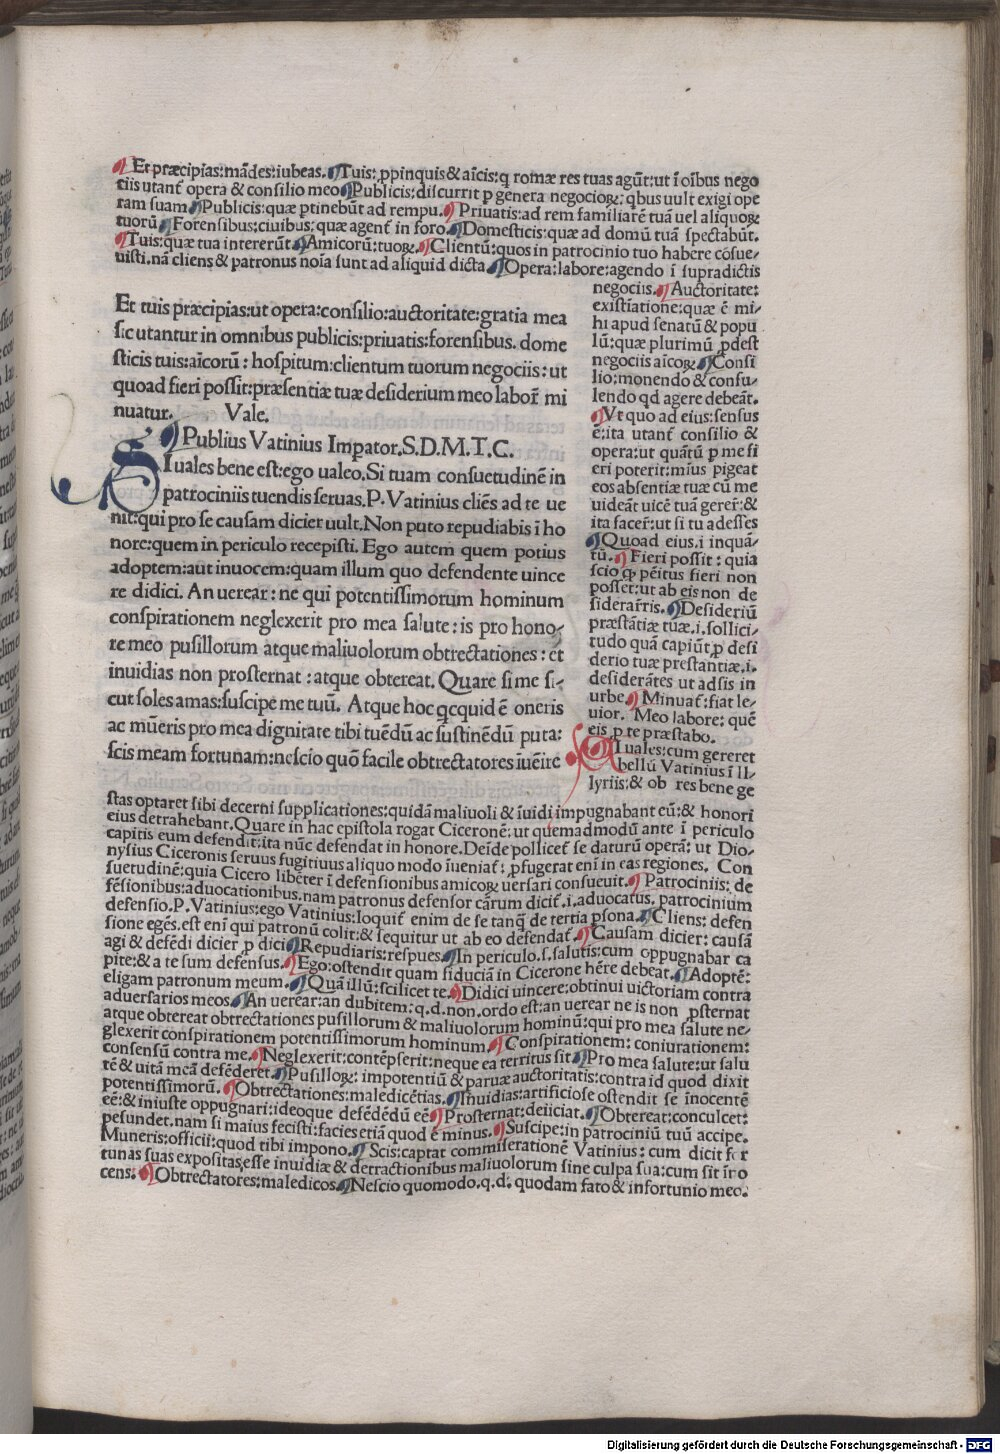 ¶Et præcipias:mādes:iubeas.¶Tuis:ꝓpinquis & aīcis:q romæ res tuas agūt:ut ī oībus nego
tiis utant̃ opera & consilio meo¶Publicis:discurrit p genera negocioꝝ: qbus uult exigi ope
ram suam¶Publicis:quæ ptinebūt ad rempu.¶Priuatis:ad rem familiarē tuā uel aliquoꝝ
tuorū¶Forensibus:ciuibus:quæ agent̃ in foro¶Domesticis:quæ ad domū tuā spectabūt.
¶Tuis:quæ tua intererūt¶Amicorū:tuoꝝ.¶Clientū:quos in patrocinio tuo habere cōsue-
uisti.nā cliens & patronus noīa sunt ad aliquid dicta¶Opera:labore:agendo ī supradictis
negociis.¶Auctoritate:
existiatione:quæ ē mi-
hi apud senatū & popu
lū:quæ plurimū ꝓdest
negociis aīcoꝝ¶Consi
lio:monendo & consu-
lendo qd agere debeāt.
¶Vt quo ad eius:sensus
ē:ita utant̃ consilio &
opera:ut quātū p me fi
eri poterit:mīus pigeat
eos absentiæ tuæ cū me
uideāt uicē tuā gerer̄:&
ita facer̄:ut si tu adesses
¶Quoad eius.i inquā-
tū.¶Fieri possit: quia
scio ꝙ pēitus fieri non
posset:ut ab eis non de
siderar̄ris.¶Desideriū
præstātiæ tuæ.i.sollici-
tudo quā capiūt p desi
derio tuæ prestantiæ.i.
desiderātes ut adsis in
urbe¶Minuat̃:fiat le-
uior. Meo labore: quē
eis p te præstabo.
Et tuis præcipias:ut opera:consilio:auctoritate:gratia mea
sic utantur in omnibus publicis:priuatis:forensibus. dome
sticis tuis:aīcorū: hospitum:clientum tuorum negociis: ut
quoad fieri possit:præsentiæ tuæ desiderium meo labor̄ mi
nuatur. Vale.
¶Publius Vatinius Impator.S.D.M.T.C.
SI uales bene est:ego ualeo.Si tuam consuetudinē in
patrociniis tuendis seruas.P.Vatinius cliēs ad te ue
nit:qui pro se causam dicier uult.Non puto repudiabis ī ho
nore:quem in periculo recepisti. Ego autem quem potius
adoptem:aut inuocem:quam illum quo defendente uince
re didici. An uerear: ne qui potentissimorum hominum
conspirationem neglexerit pro mea salute: is pro hono-
re meo pusillorum atque maliuolorum obtrectationes: et
inuidias non prosternat: atque obtereat. Quare si me si-
cut soles amas:suscipe me tuū. Atque hoc qcquid ē oneris
ac mūeris pro mea dignitate tibi tuēdū ac sustinēdū puta:
scis meam fortunam:nescio quō facile obtrectatores īuēire
SI uales:cum gereret
bellū Vatinius ī Il-
lyriis:& ob res bene ge
stas optaret sibi decerni supplicationes:quidā maliuoli & īuidi impugnabant eū:& honori
eius detrahebant.Quare in hac epistola rogat Ciceronē:ut quemadmodū ante ī periculo
capitis eum defendit:ita nūc defendat in honore.Deīde pollicet̃ se daturū operā: ut Dio-
nysius Ciceronis seruus fugitiuus aliquo modo īueniat̃: ꝓfugerat enī in eas regiones. Con
suetudinē:quia Cicero libēter ī defensionibus amicoꝝ uersari consueuit.¶Patrociniis: de
fēsionibus:aduocationibus.nam patronus defensor cārum dicit̃.i.aduocatus. patrocinium
defensio.P.Vatinius:ego Vatinius:loquit̃ enim de se tanq̄ de tertia psona.¶Cliens: defen
sione egēs.est enī qui patronū colit:& sequitur ut ab eo defendat̃.¶Causam dicier: causā
agi & defēdi dicier p dici¶Repudiaris:respues.¶In periculo.s.salutis:cum oppugnabar ca
pite:& a te sum defensus.¶Ego:ostendit quam fiduciā in Cicerone hēre debeat.¶Adoptē:
eligam patronum meum.¶Quā illū:scilicet te.¶Didici uincere:obtinui uictoriam contra
aduersarios meos.¶An uerear:an dubitem:q.d.non.ordo est:an uerear ne is non ꝓsternat
atque obtereat obtrectationes pusillorum & maliuolorum hominū:qui pro mea salute ne-
glexerit conspirationem potentissimorum hominum.¶Conspirationem: coniurationem:
consensū contra me.¶Neglexerit:contēpserit:neque ea territus sit¶Pro mea salute:ut salu
tē & uitā meā defēderet.¶Pusilloꝝ: impotentiū & paruæ auctoritatis:contra id quod dixit
potentissimorū.¶Obtrectationes:maledicētias.¶Inuidias:artificiose ostendit se īnocentē
eē:& iniuste oppugnari:ideoque defēdēdū eē¶Prosternat:deiiciat.¶Obtereat:conculcet:
pesundet.nam si maius fecisti:facies etiā quod ē minus.¶Suscipe:in patrociniū tuū accipe.
Muneris:officii:quod tibi impono.¶Scis:captat commiserationē Vatinius: cum dicit for
tunas suas expositas esse inuidiæ & detractionibus maliuolorum sine culpa sua:cum sit īno
cens:¶Obtrectatores:maledicos.¶Nescio quomodo.q.d: quodam fato & infortunio meo.
Digitalisierung gefördert durch die Deutsche Forschungsgemeinschaft - DFG